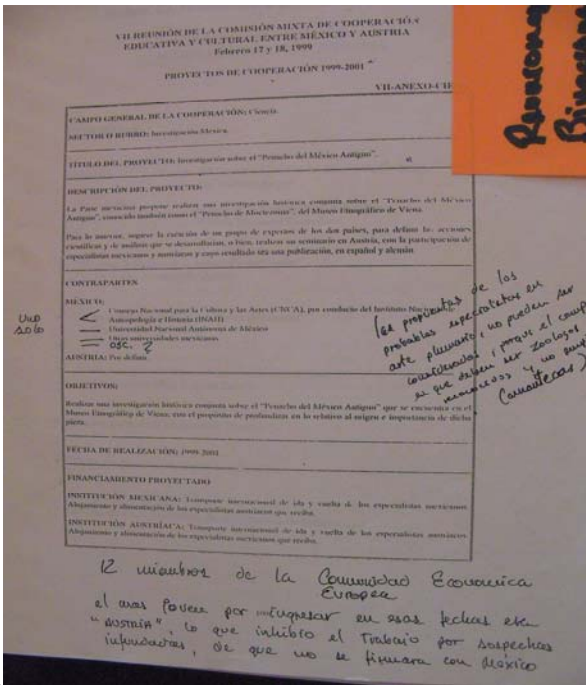 VII REUNIÓN DE LA COMISIÓN MIXTA DE COOPERACIÓN
EDUCATIVA Y CULTURAL ENTRE MÉXICO Y AUSTRIA
Febrero 17 y 18, 1999
PROYECTOS DE COOPERACIÓN 1999-2001
VII-ANEXO-CIE
CAMPO GENERAL DE LA COOPERACIÓN: Ciencia
SECTOR O RUBRO: Investigación México
TÍTULO DEL PROYECTO: Investigación sobre el "Penacho del México Antiguo".
DESCRIPCIÓN DEL PROYECTO:
La Parte mexicana propone realizar una investigación histórica conjunta sobre el "Penacho del México
Antiguo", conocido también como el "Penacho de Moctezuma", del Museo Etnográfico de Viena.
Para lo anterior, sugiere la creación de un grupo de expertos de los dos países, para definir las acciones
científicas y de análisis que se desarrollarían, o bien, realizar un seminario en Austria, con la participación de
especialistas mexicanos y austríacos y cuyo resultado sea una publicación, en español y alemán.
CONTRAPARTES
MÉXICO:
Consejo Nacional para la Cultura y las Artes (CNCA), por conducto del Instituto Nacional de
Antropología e Historia (INAH)
Universidad Nacional Autónoma de México
Otras universidades mexicanas
OSC. ?
AUSTRIA: Por definir
Uno
solo
propuestas de los
probables especialistas en
arte plumario, no pueden ser
porque el
que deben ser zoologos
y no
(amantecas)
OBJETIVOS:
Realizar una investigación histórica conjunta sobre el "Penacho del México Antiguo" que se encuentra en el
Museo Etnográfico de Viena, con el propósito de profundizar en lo relativo al origen e importancia de dicha
pieza.
FECHA DE REALIZACIÓN: 1999-2001
FINANCIAMIENTO PROYECTADO
INSTITUCIÓN MEXICANA: Transporte internacional de ida y vuelta de los especialistas mexicanos
Alojamiento y alimentación de los especialistas austríacos que reciba.
INSTITUCIÓN AUSTRÍACA: Transporte internacional de ida y vuelta de los especialistas austríacos
Alojamiento y alimentación de los especialistas mexicanos que reciba.
12 miembros de la Comunidad Economica
Europea
el mas Joven por ingresar en esas fechas era
"AUSTRIA", lo que inhibio el Trabajo por sospechas
infundadas, de que no se firmara con México